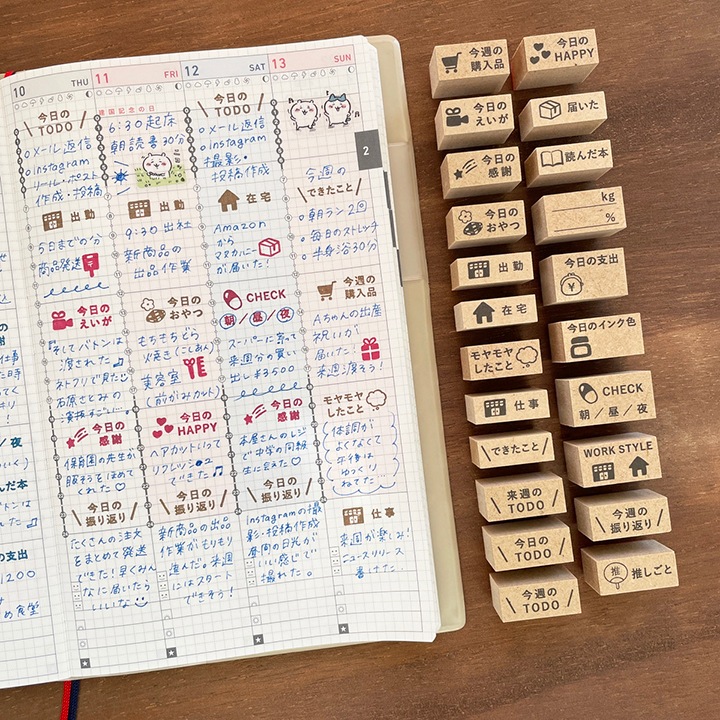 10 THU
11 FRI
12 SAT
13 SUN
2
今日の
TODO
○メール返信
○instagram
リール・ポスト
作成・投稿
出勤
5日までの分
商品発送
今日の
えいが
『そしてバトンは
渡された』
ネトフリで見た
石原さとみの
今日の
感謝
保育園の先生が
服そうをほめて
くれた♡
今日の
振り返り
たくさんの注文
をまとめて発送
できた!早くみん
なに届いたら
いいな
建国記念の日
6:30起床
朝読書30分
出勤
9:30出社
新商品の
出品作業
今日の
おやつ
もちもちどら
焼き(こしあん)
美容室
(前がみカット)
今日の
HAPPY
ヘアカットいって
リフレッシュ
できた♫
今日の
振り返り
新商品の出品
作業がもりもり
進んだ。来週
にはスタート
できそう!
今日の
TODO
○メール返信
○instagram
撮影・
投稿作成
在宅
Amazon
から
マヌカハニー
が届いた!
CHECK
朝/昼/夜
スーパーに寄って
来週分の買い
出し¥3500
今日の
感謝
本屋さんのレジ
で中学の同級
生に会えた♡
今日の
振り返り
instagramの撮
影・投稿作成
昼間の日光が
いい感じで
撮れた。
今週の
できたこと
○朝ラン2回
○毎日のストレッチ
○半身浴30分
今週の
購入品
Aちゃんの出産
祝いが
届いた!
来週渡そう!
モヤモヤ
したこと
体調が
よくなくて
午後は
ゆっくり
ねてた…
仕事
来週が楽しみ!
ニュースリリース
書けた
今週の
購入品
今日の
HAPPY
今日の
えいが
届いた
今日の
感謝
読んだ本
今日の
おやつ
kg
%
出勤
今日の支出
在宅
今日のインク色
モヤモヤ
したこと
CHECK
朝/昼/夜
仕事
WORK STYLE
できたこと
来週の
TODO
今週の
振り返り
今日の
TODO
推
推しごと
今週の
TODO